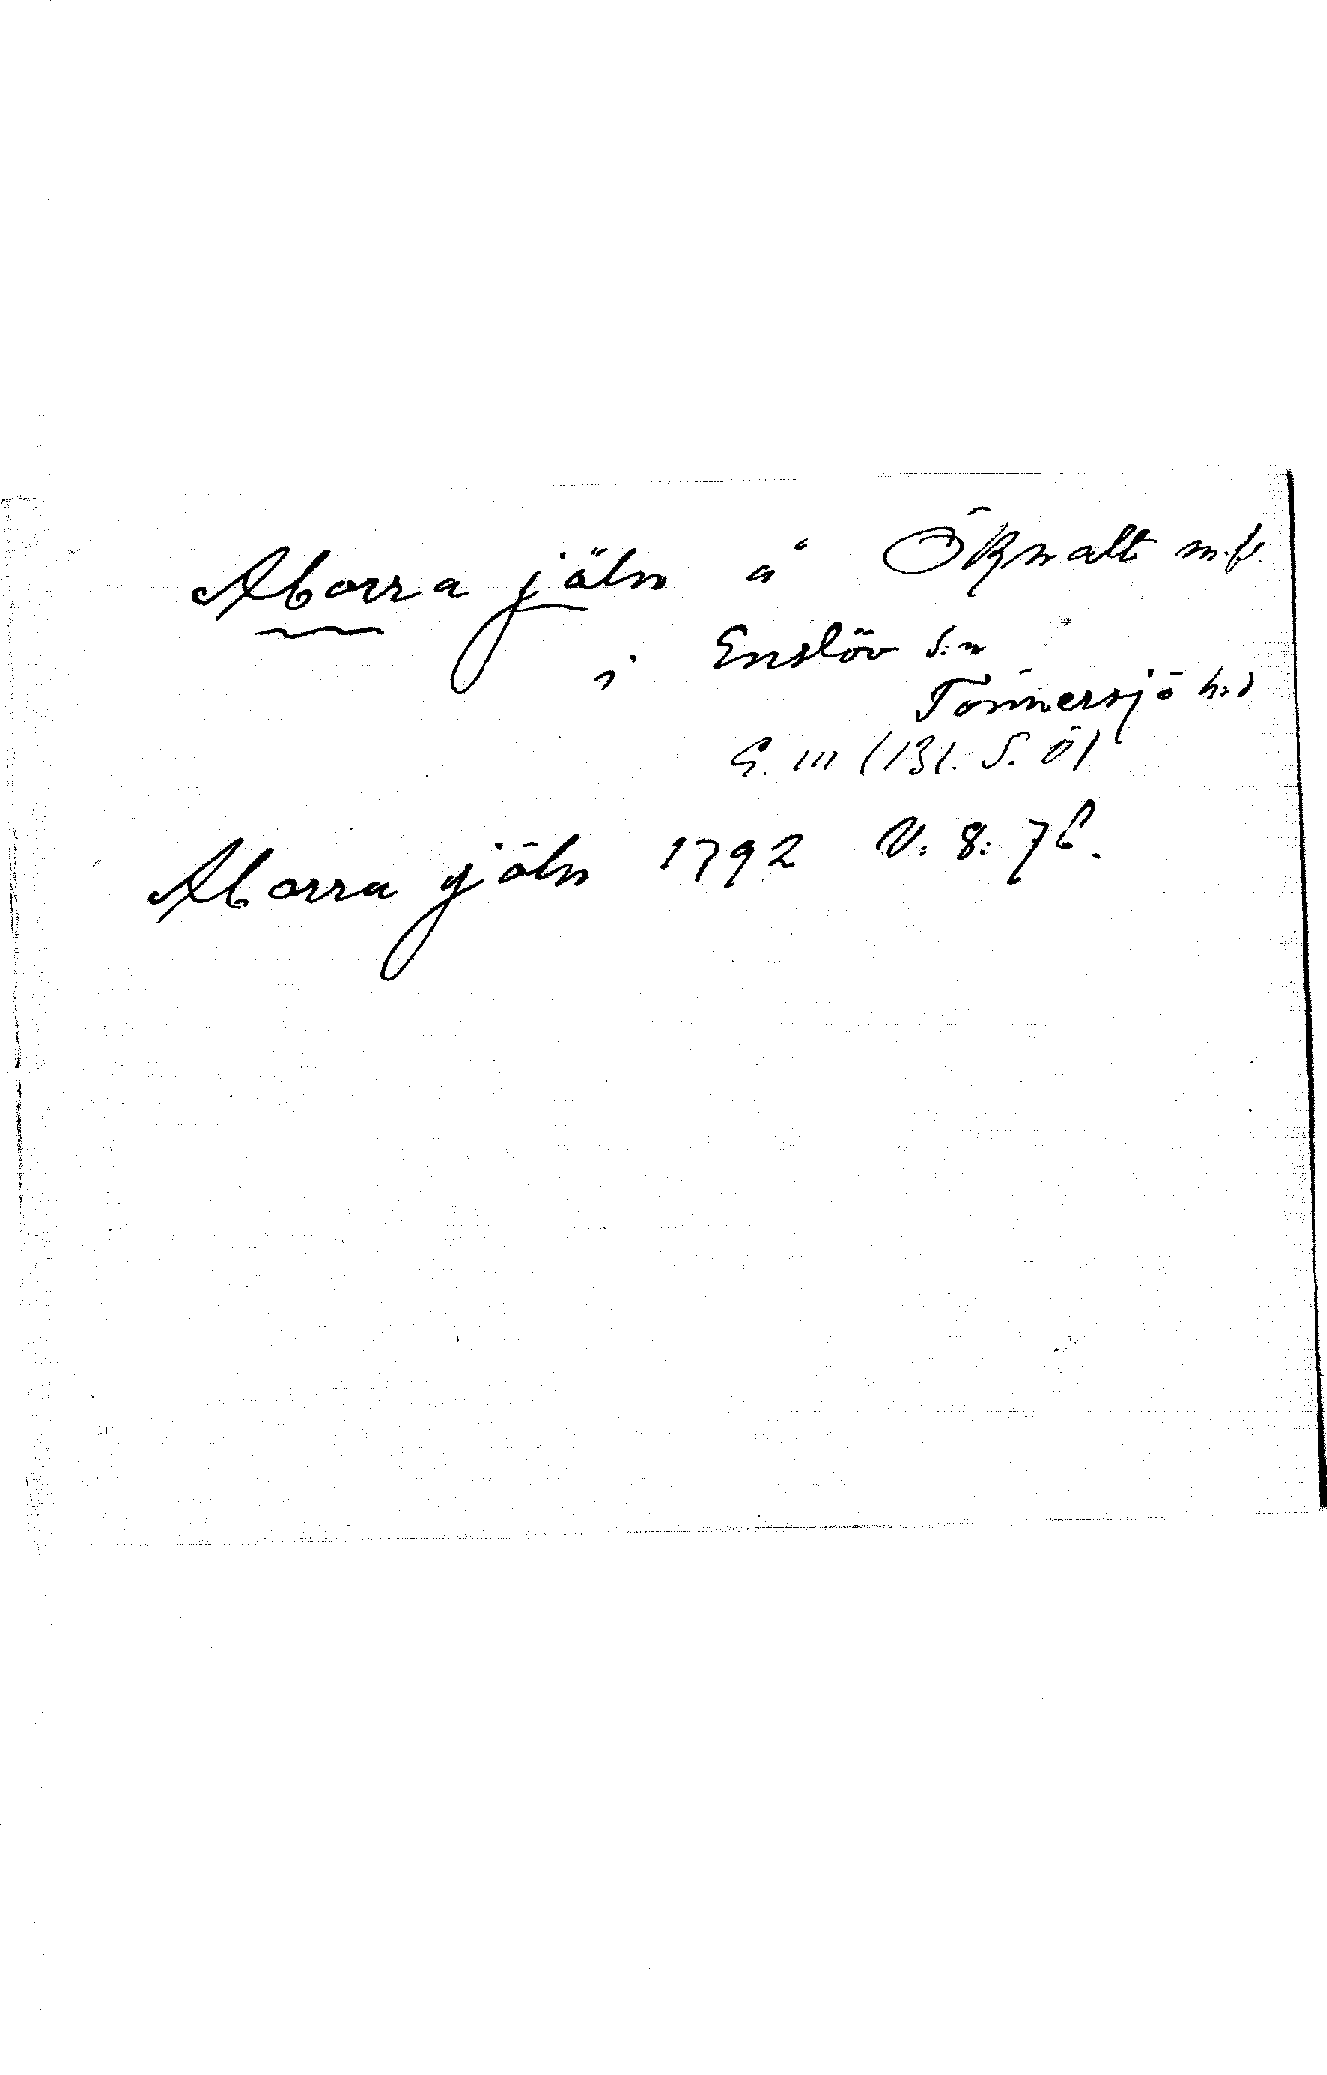 Aborra jäln å Öknalt m.fl.
i Enslöv s:n
Tönnersjö h:d
G. III (131. S. Ö)
Aborra gjöln 1792 V. 8: 76.